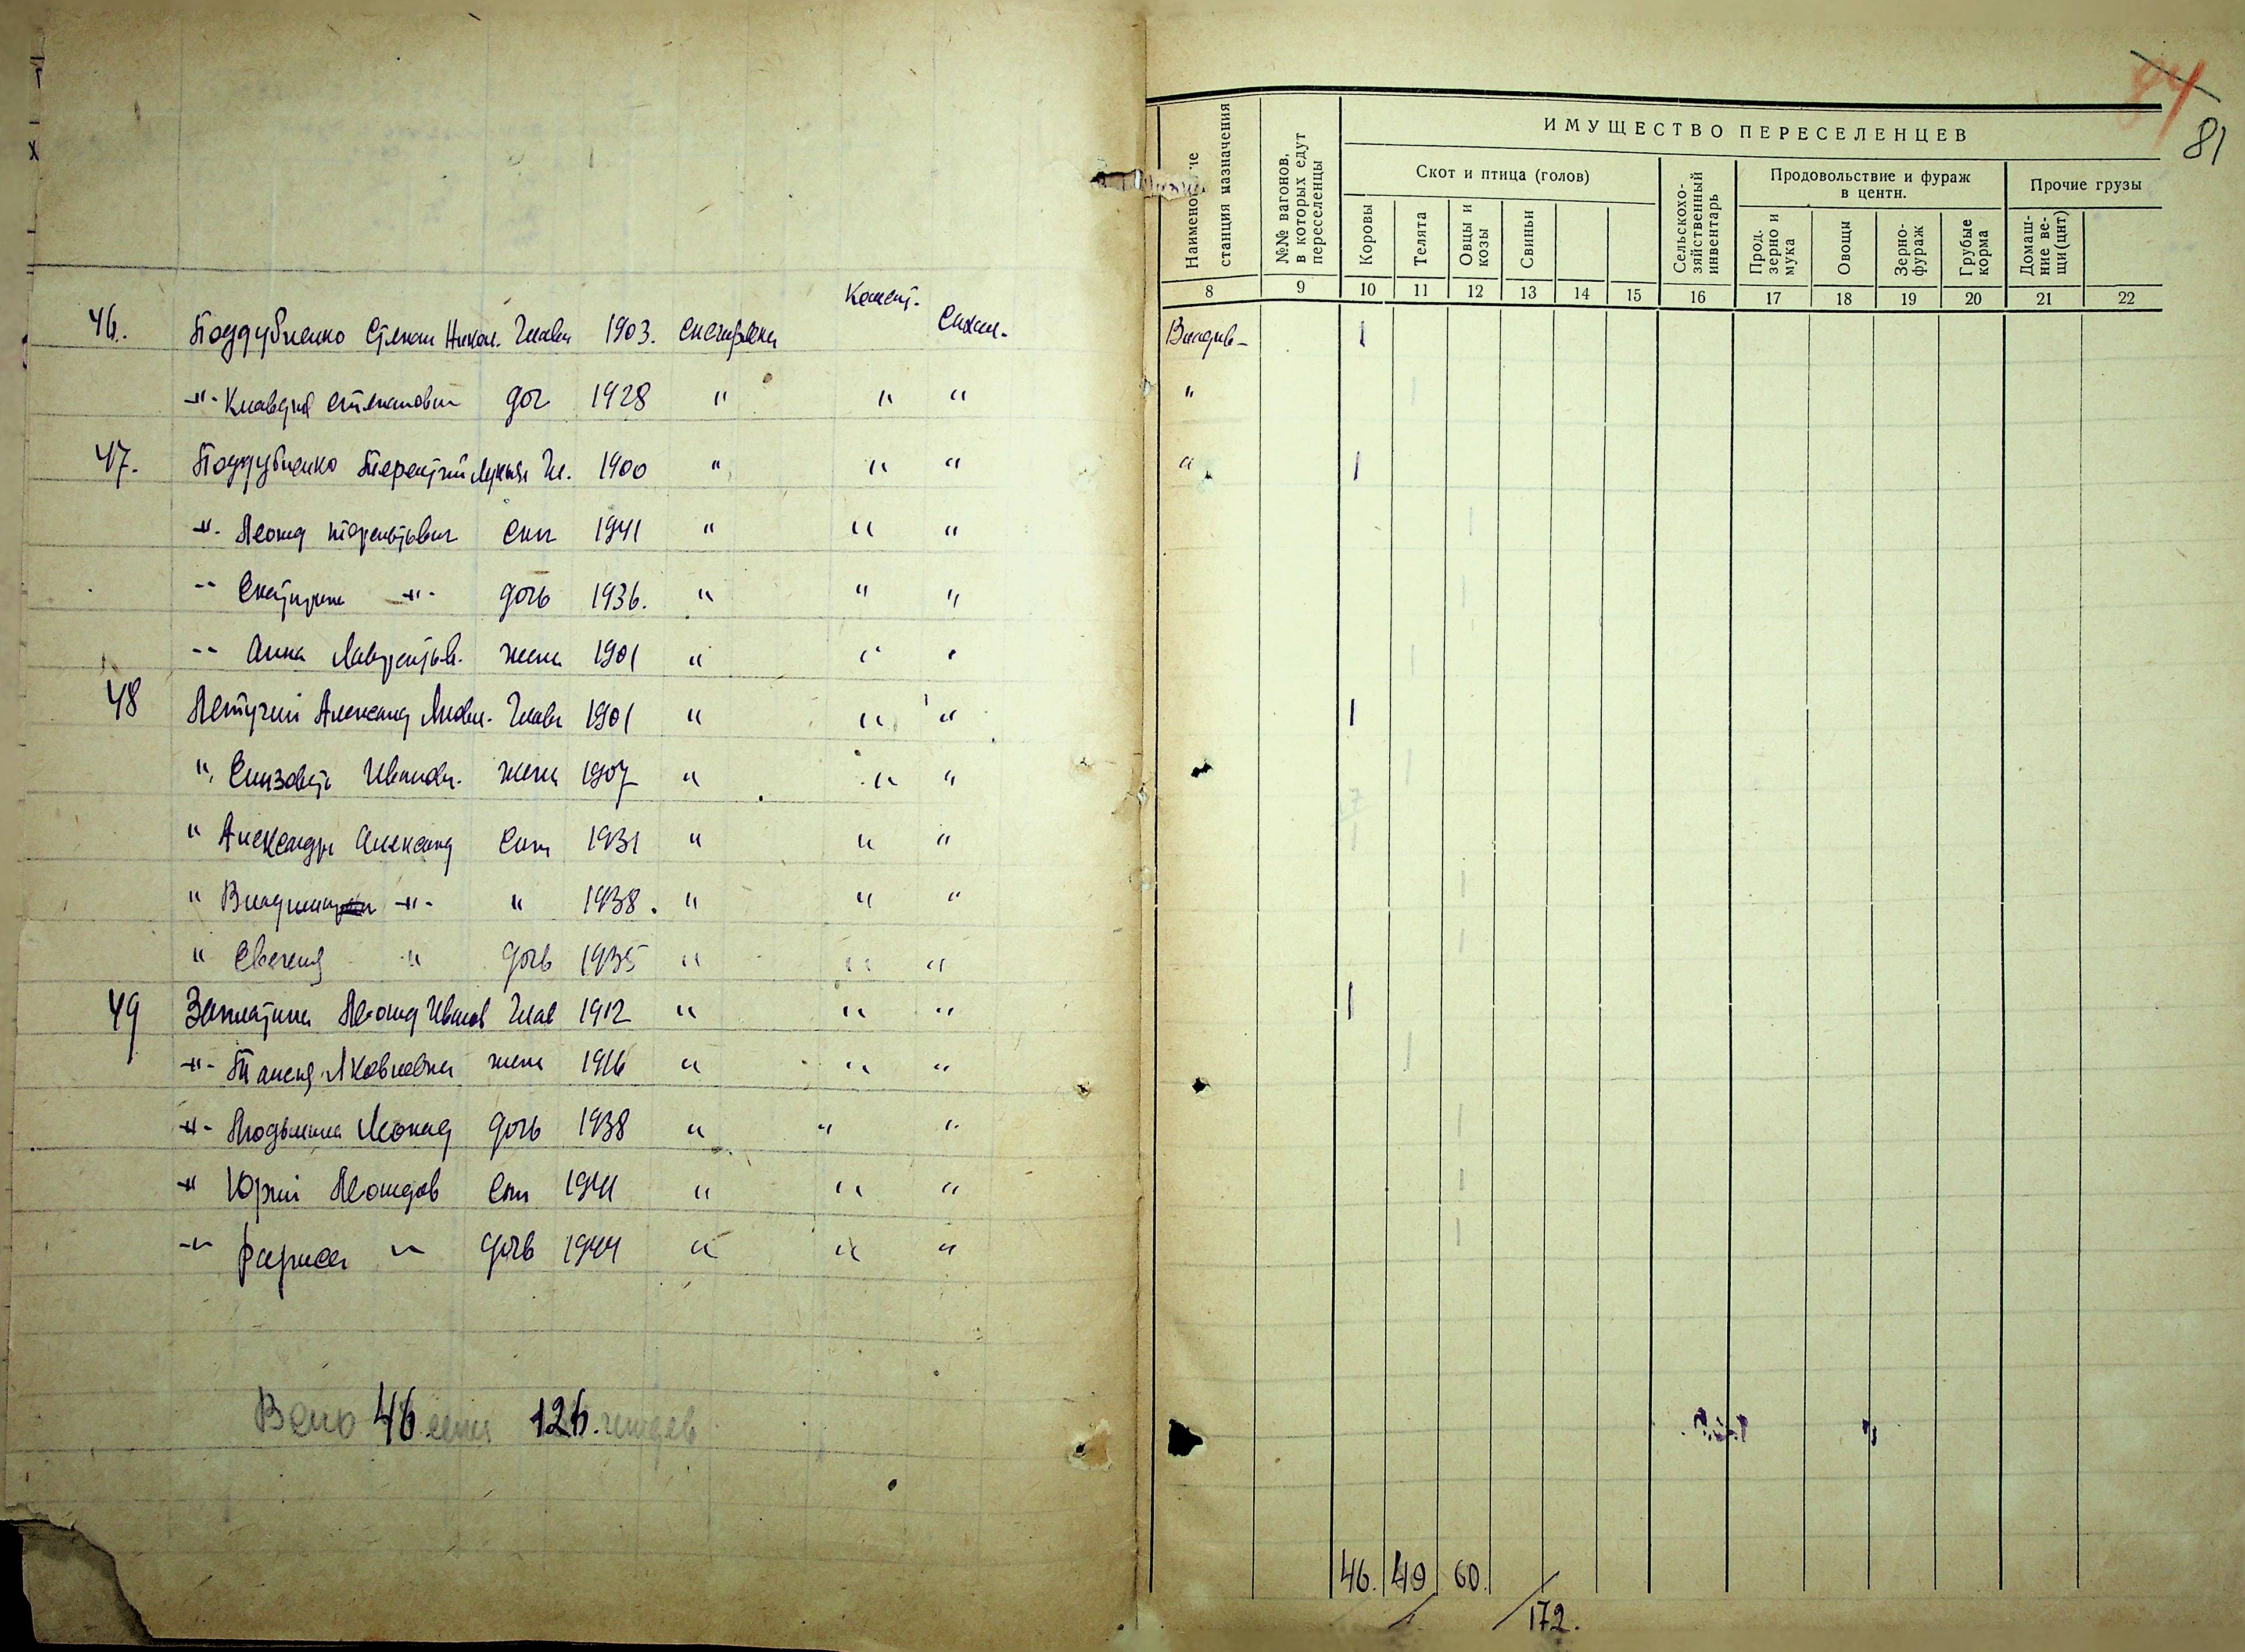 84
81
ИМУЩЕСТВО ПЕРЕСЕЛЕНЦЕВ
станция назначения
№№ вагонов, в которых едут переселенцы
Скот и птица (голов)
Сельскохо-зяйственный инвентарь
Продовольствие и фураж в центн.
Прочие грузы
Коровы
Телята
Овцы и козы
Свиньи
Прод. зерно и мука
Овощи
Зерно-фураж
Грубые корма
Домаш-ние ве-щи (цнт)
8 9 10 11 12 13 14 15 16 17 18 19 20 21 22
46. Поддубненко Степан Никол. Глава 1903. Сахал. 1
-"- Клавдия Степанови доч 1928 " " " "
47. Поддубненко Терентий Лукья Гл. 1900 " " " " 1
-"- Леонид Терентьевич сын 1941 " " "
-"- Екатерина -"- дочь 1936. " " "
-"- Анна Лаврентьев. жена 1901 " " "
48 Александ Глава 1901 " " " 1
" Елизавета Иванов. жена 1907 " " "
" Александр Александ сын 1931 " " "
" Владимир -"- " 1938. " " "
" Евгения " дочь 1935 " " "
49 Леонид Иванов Глав 1912 " " " 1
-"- Яковлевна жена 1916 " " "
-"- Людмила Леонид дочь 1938 " " "
-"- Юрий Леонидов сын 1941 " " "
-"- " дочь 1944 " " "
Всего 46 семи 126.
46. 49 60.
172.